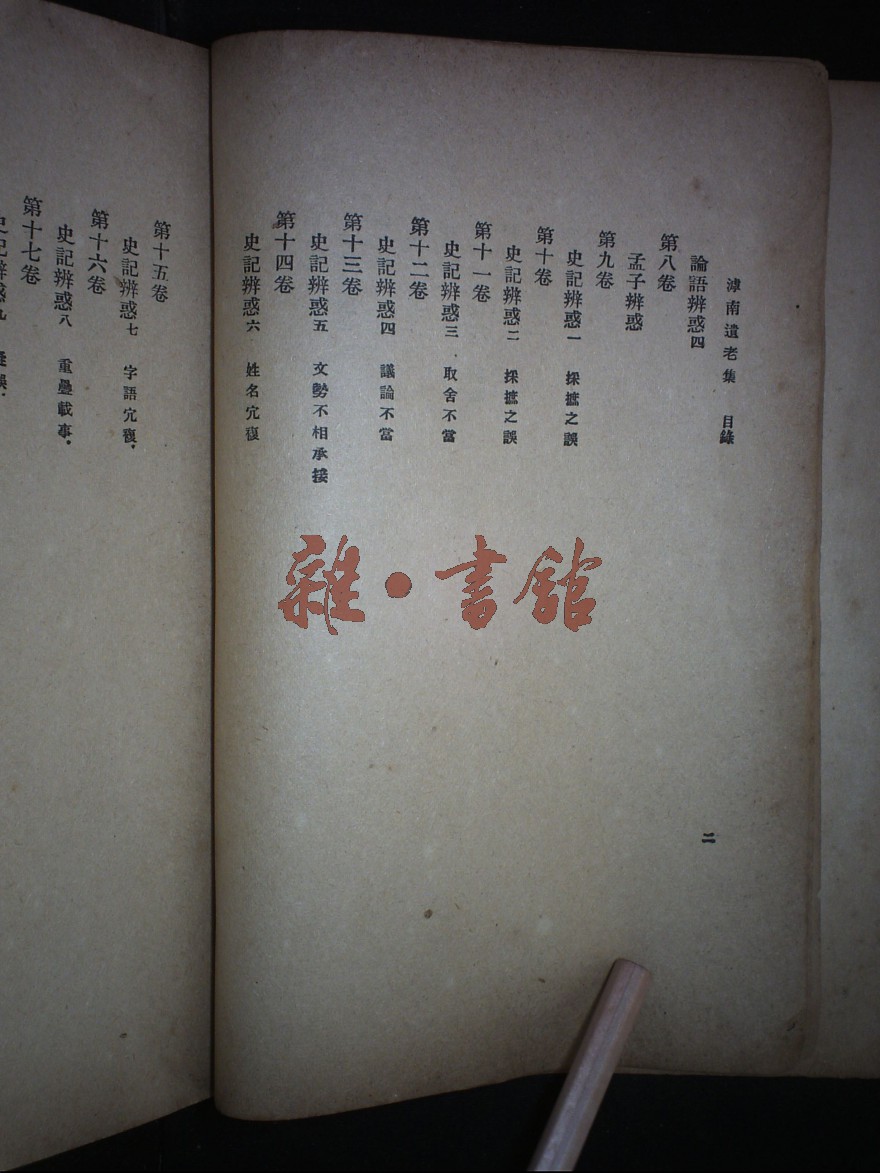 滹南遺老集　目錄
論語辨惑四
第八卷
孟子辨惑
第九卷
史記辨惑一　採摭之誤
第十卷
史記辨惑二　採摭之誤
第十一卷
史記辨惑三　取舍不當
第十二卷
史記辨惑四　議論不當
第十三卷
史記辨惑五　文勢不相承接
第十四卷
史記辨惑六　姓名宂複
二
第十五卷
史記辨惑七　字語宂複
第十六卷
史記辨惑八　重疊載事
第十七卷
史記辨惑九
雜·書館